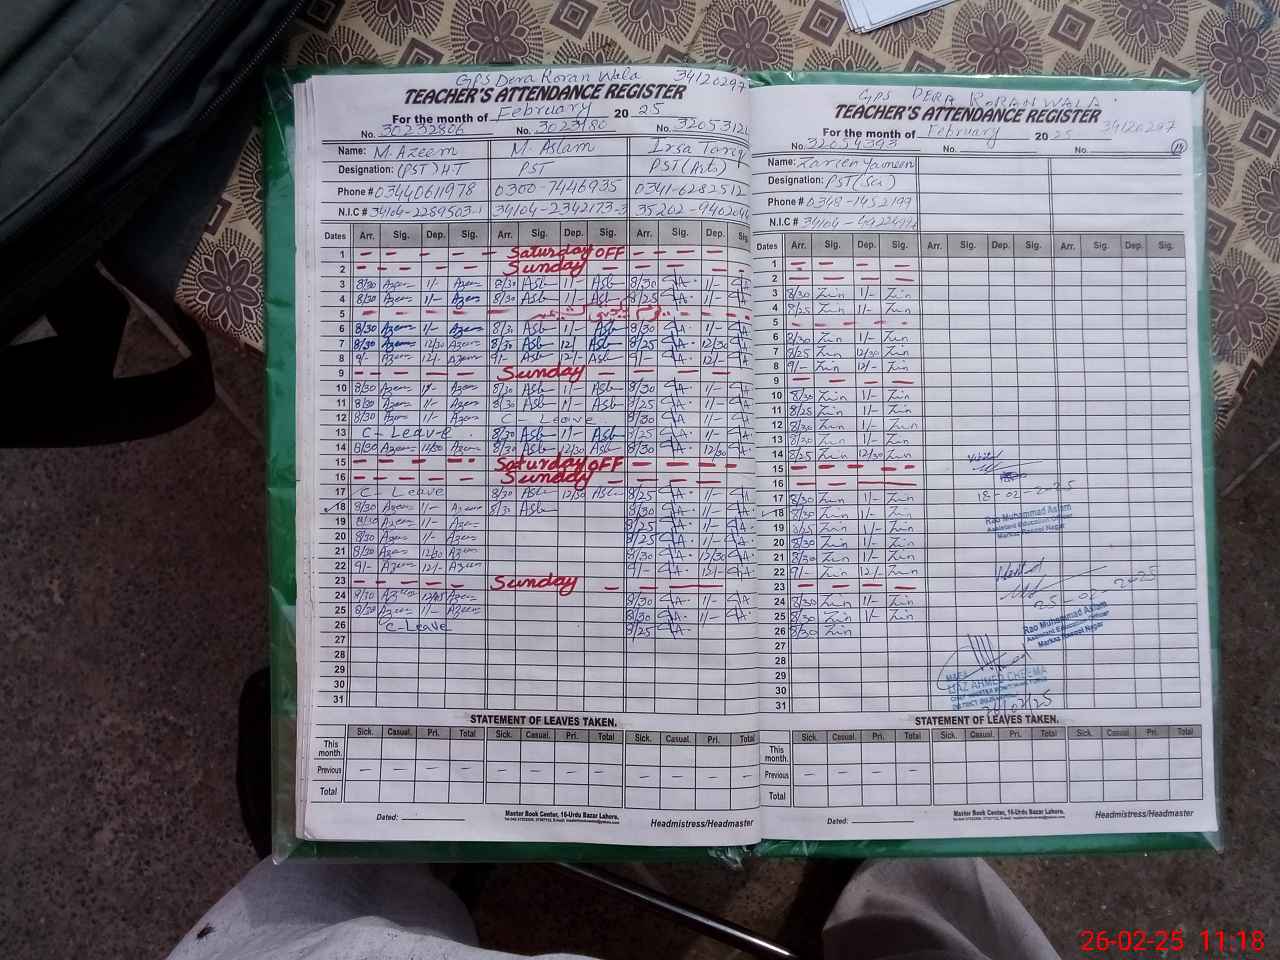 GPS Dera Roran Wala 34120297
TEACHER'S ATTENDANCE REGISTER
For the month of February 20 25
No. 30232806 No. 3023180 No. 3205312
Name: M. Azeem M. Aslam Irsa Tariq
Designation: (PST) H.T PST PST (Arts)
Phone # 03440611978 0300-7446935 0341-6282512
N.I.C # 34104-2289503-1 34104-2342173-3 35202-940204
Dates Arr. Sig. Dep. Sig. Arr. Sig. Dep. Sig. Arr. Sig. Dep. Sig.
1 Saturday OFF
2 Sunday
3 8/30 Azeem 1/- Azeem 8/30 Asl 1/- Asl 8/30 1/-
4 8/30 Azeem 1/- Azeem 8/30 Asl 1/- Asl 8/25 1/-
5
6 8/30 Azeem 1/- Azeem 8/30 Asl 1/- Asl 8/30 1/-
7 8/30 Azeem 12/30 Azeem 8/30 Asl 12/ Asl 8/25 12/30
8 9/- Azeem 12/- Azeem 9/- Asl 12/- Asl 9/- 12/-
9 Sunday
10 8/30 Azeem 1/- Azeem 8/30 Asl 1/- Asl 8/30 1/-
11 8/30 Azeem 1/- Azeem 8/30 Asl 1/- Asl 8/25 1/-
12 8/30 Azeem 1/- Azeem C Leave 8/30 1/-
13 C-Leave 8/30 Asl 1/- Asl 8/25 1/-
14 8/30 Azeem 12/30 Azeem 8/30 Asl 12/30 Asl 8/30 12/30
15 Saturday OFF
16 Sunday
17 C-Leave 8/30 Asl 12/30 Asl 8/25 1/-
18 8/30 Azeem 1/- Azeem 8/30 Asl 8/30 1/-
19 8/30 Azeem 1/- Azeem 8/25 1/-
20 8/30 Azeem 1/- Azeem 8/25 1/-
21 8/30 Azeem 12/30 Azeem 8/30 12/30
22 9/- Azeem 12/- Azeem 9/- 12/-
23 Sunday
24 Azeem Azeem 8/30 1/-
25 8/30 Azeem 1/- Azeem 8/30 1/-
26 C-Leave 8/25
27
28
29
30
31
STATEMENT OF LEAVES TAKEN.
Sick. Casual. Pri. Total Sick. Casual. Pri. Total Sick. Casual. Pri. Total
This month.
Previous - - - - - - - - - - - -
Total
Dated: Master Book Center, 16-Urdu Bazar Lahore, Headmistress/Headmaster
GPS DERA RORAN WALA
TEACHER'S ATTENDANCE REGISTER
For the month of February 20 25 34120297
No. 32054393 No. No.
Name: Zareen Yameen
Designation: PST (Sci)
Phone # 0348-1452199
N.I.C #
Dates Arr. Sig. Dep. Sig. Arr. Sig. Dep. Sig. Arr. Sig. Dep. Sig.
1
2
3 8/30 Zrin 1/- Zrin
4 8/25 Zrin 1/- Zrin
5
6 8/30 Zrin 1/- Zrin
7 8/25 Zrin 12/30 Zrin
8 9/- Zrin 12/- Zrin
9
10 8/30 Zrin 1/- Zrin
11 8/25 Zrin 1/- Zrin
12 8/30 Zrin 1/- Zrin
13 8/30 Zrin 1/- Zrin
14 8/25 Zrin 12/30 Zrin
15 Visited
16
17 8/30 Zrin 1/- Zrin 18-02-2025
18 8/30 Zrin 1/- Zrin Rao Muhammad Aslam
19 8/25 Zrin 1/- Zrin Assistant Education Officer
Markaz Rasool Nagar
20 8/30 Zrin 1/- Zrin
21 8/30 Zrin 1/- Zrin
22 9/- Zrin 12/- Zrin Visited
23
24 8/30 Zrin 1/- Zrin 25-02-2025
25 8/30 Zrin 1/- Zrin Rao Muhammad Aslam
26 8/30 Zrin Assistant Education Officer
Markaz Rasool Nagar
27
28
29 IJAZ AHMED CHEEMA
30
31
STATEMENT OF LEAVES TAKEN.
Sick. Casual. Pri. Total Sick. Casual. Pri. Total Sick. Casual. Pri. Total
This month.
Previous - - - -
Total
Dated: Master Book Center, 16-Urdu Bazar Lahore, Headmistress/Headmaster
26-02-25 11:18